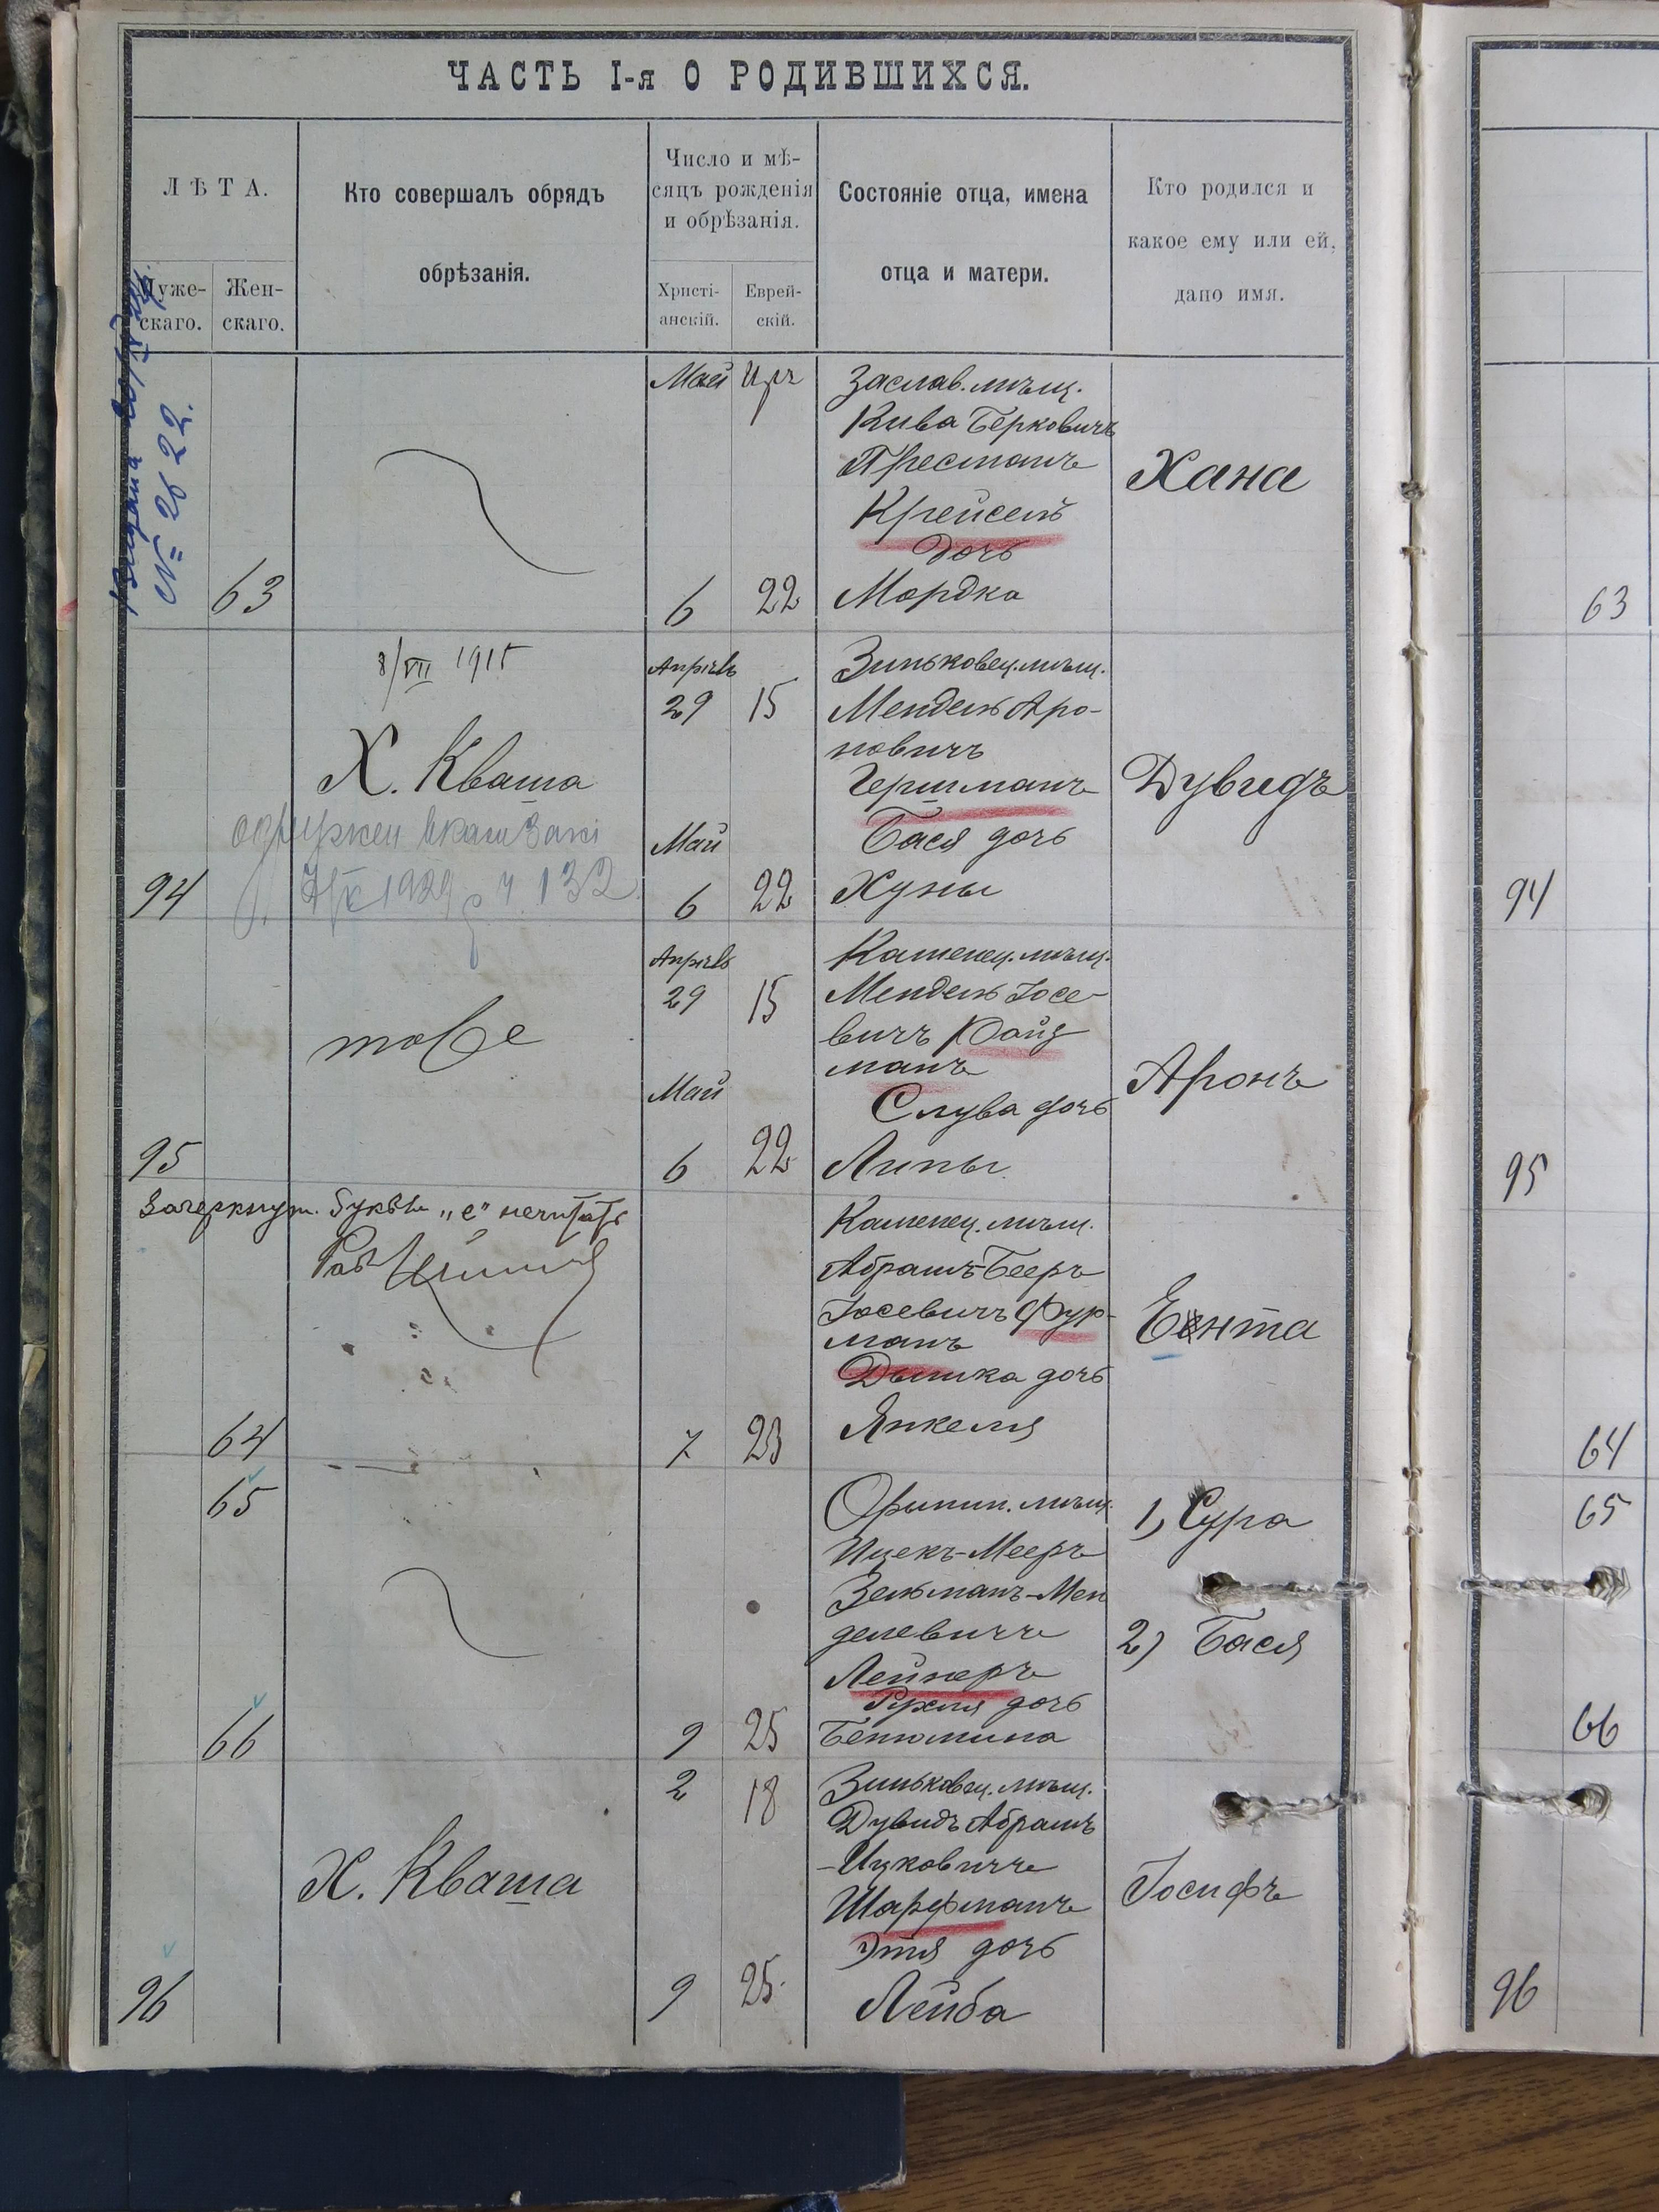 ЧАСТЬ I-я О РОДИВШИХСЯ.
ЛѢТА.
Муже-
скаго.
Жен-
скаго.
Кто совершалъ обрядъ
обрѣзанія.
Число и мѣ-
сяцъ рожденія
и обрѣзанія.
Христі-
анскій.
Еврей-
скій.
Состояніе отца, имена
отца и матери.
Кто родился и
какое ему или ей,
дано имя.
№ 2622.
63
Май Иръ
6 22
Заслав. мѣщ.
Кива Берковичъ
Пресманъ
Крейсель
дочь
Мордка
Хана
63
94
8/VII 1915
Х. Кваша
1939 ч. 132
Апрѣль
29 15
Май
6 22
Зиньковец. мѣщ.
Мендель Аро-
новичъ
Гершманъ
Бася дочь
Хуны
Дувидъ
94
95
тоже
Апрѣль
29 15
Май
6 22
Каменец. мѣщ.
Мендель Іосе-
вичъ
манъ
Слува дочь
Липы
Аронъ
95
Зачеркнут. букву „е" нечитать
Раб
64
7 23
Каменец. мѣщ.
Абрамъ-Бееръ
Іосевичъ Фур-
манъ
Дышка дочь
Янкеля
Еента
64
65
66
9 25
Орынин. мѣщ.
Ицекъ-Мееръ
Зельманъ-Мен
делевичъ
Лейнеръ
Рухля дочь
Бенюмина
1, Сура
2) Бася
65
66
96
Х. Кваша
2 18
9 25
Зиньковец. мѣщ.
Дувидъ Абрамъ
-Ицковичъ
Шарфманъ
Этя дочь
Лейба
Іосифъ
96